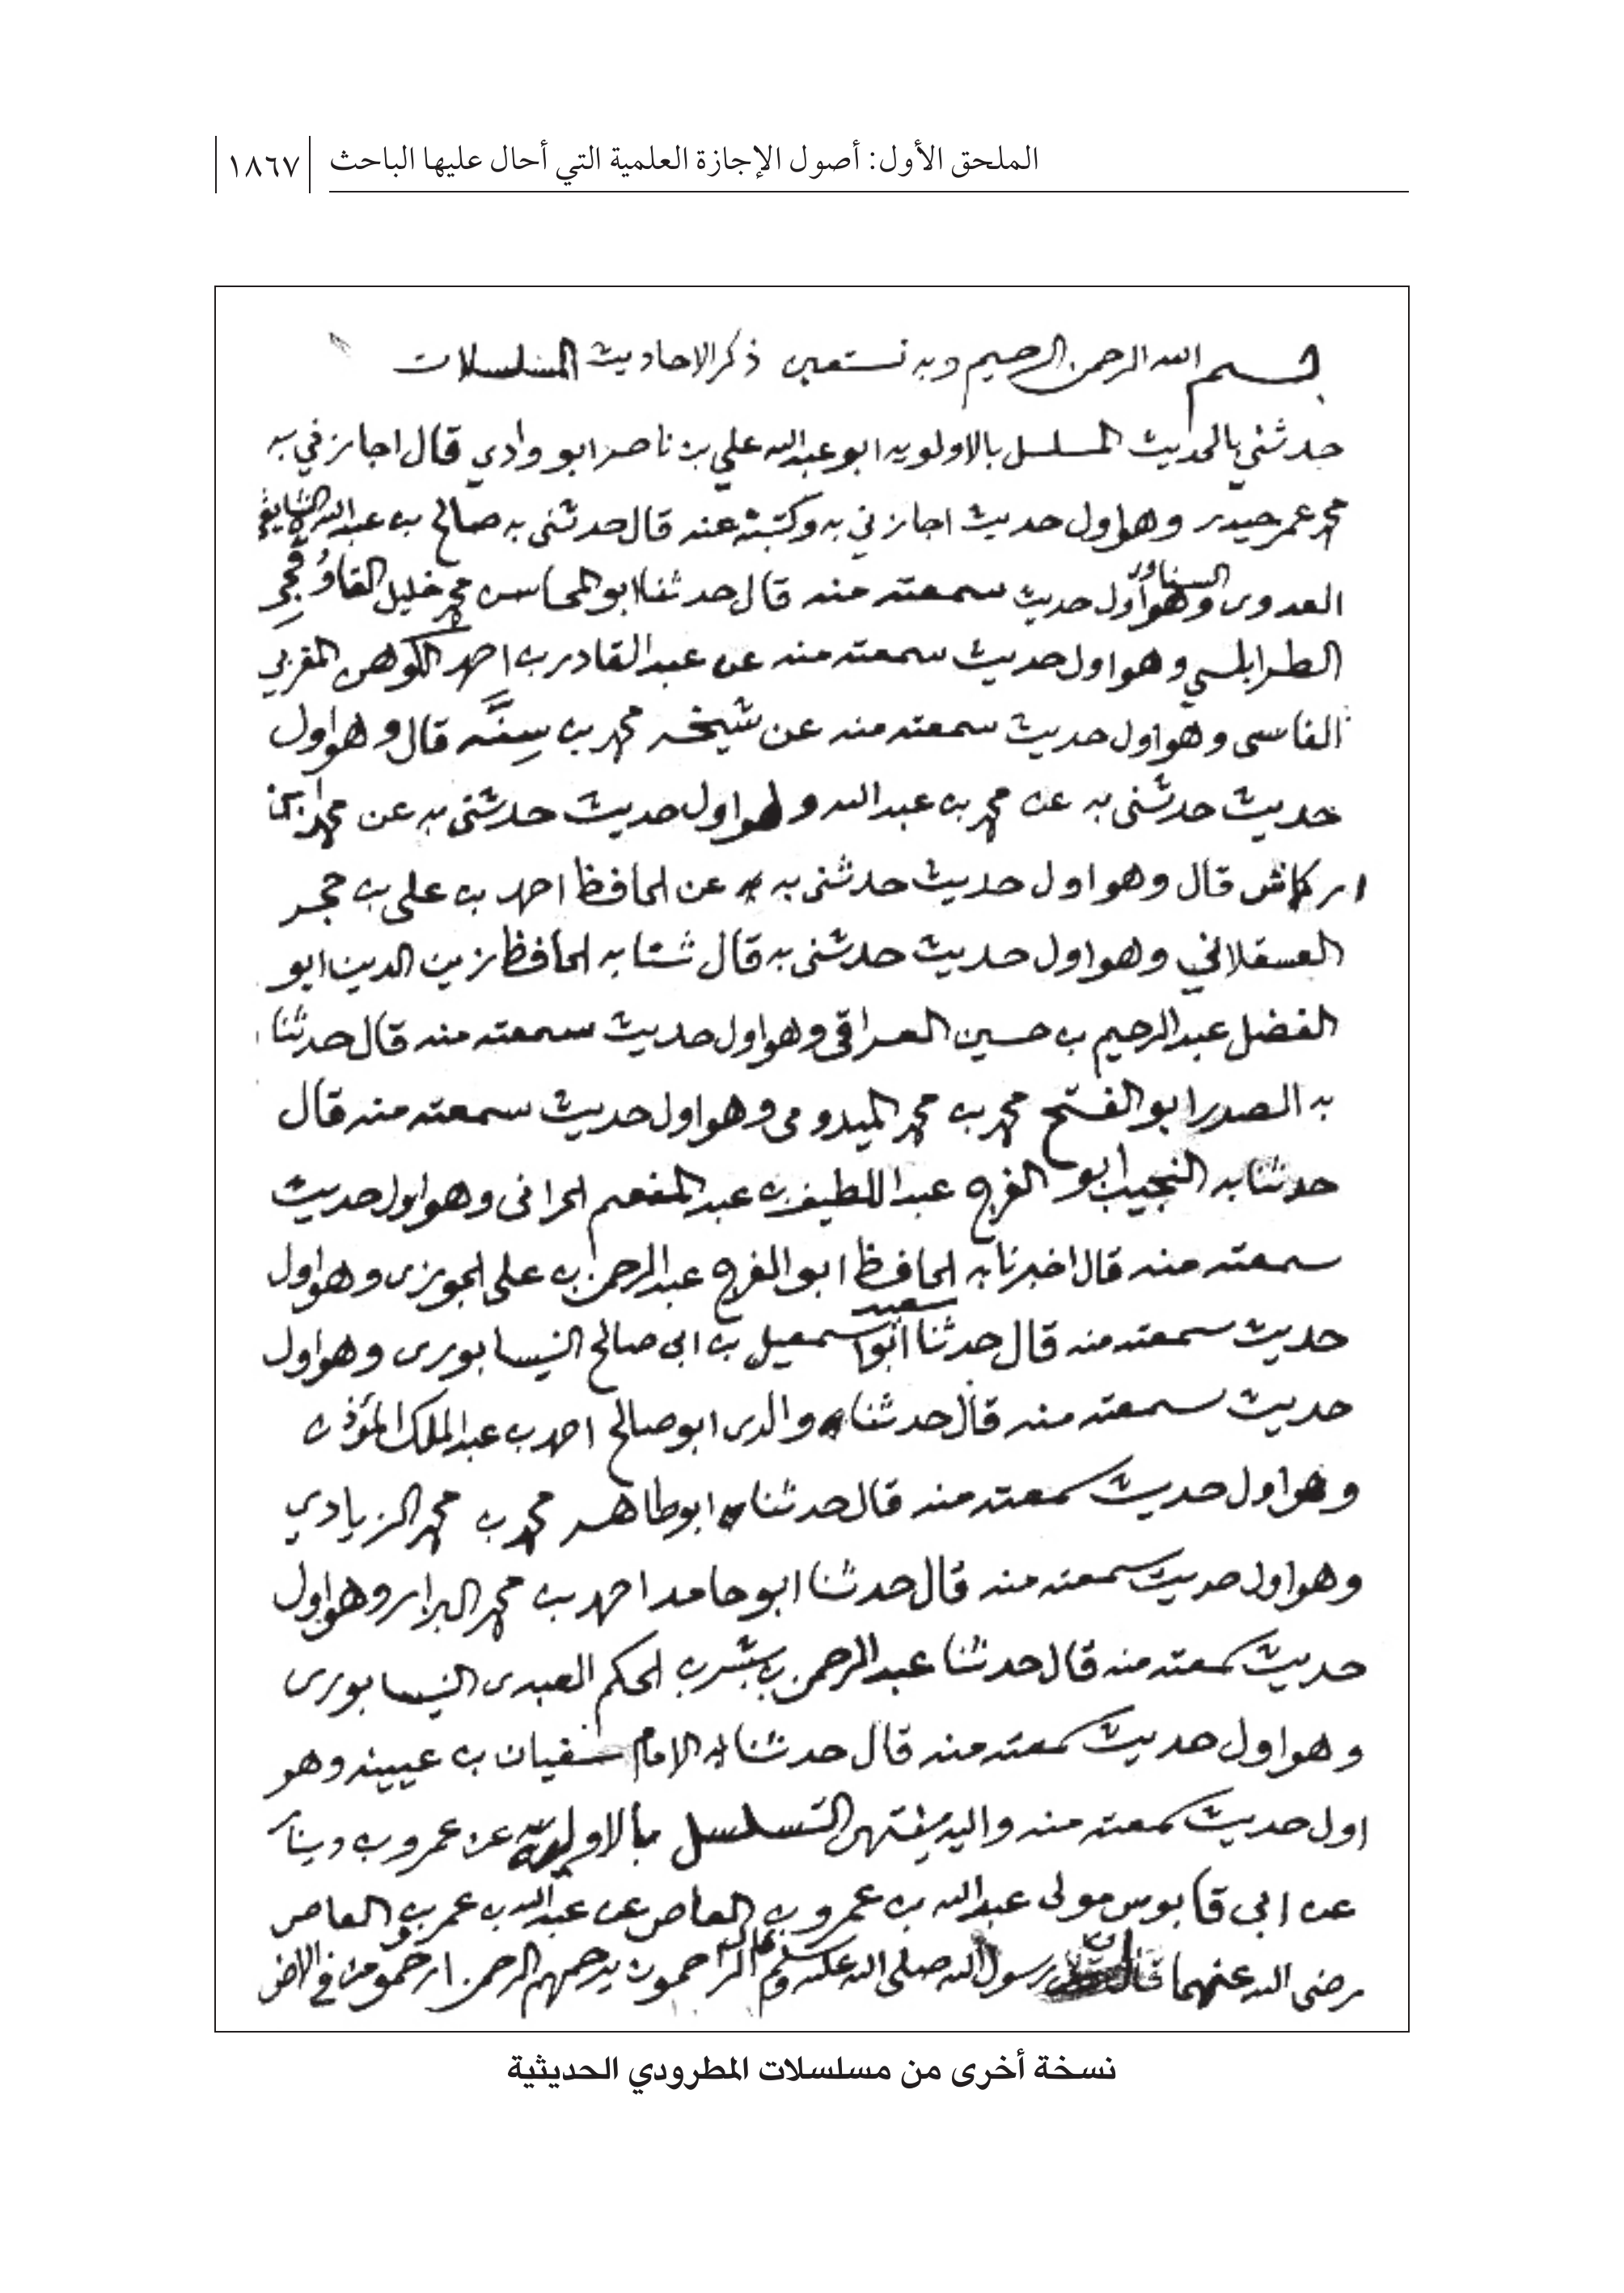 الملحق الأول: أصول الإجازة العلمية التي أحال عليها الباحث
١٨٦٧
بسم الله الرحمن الرحيم وبه نستعين ذكر الاحاديث المسلسلات
حدثني بالحديث المسلسل بالاولويه ابو عبدالله علي بن ناصر ابو وادي قال اجازني به
محمد عمر حيدر وهو اول حديث اجازني به وكتبته عنه قال حدثنى به صالح بن عبدالله
العدوى السناوى وهو أول حديث سمعته منه قال حدثنا ابو المحاسن محمد خليل القاوُقجِي
الطرابلسي وهو اول حديث سمعته منه عن عبدالقادر بن احمد الكوهن المغربي
الفاسى وهو اول حديث سمعته منه عن شيخه محمد بن سِنَّه قال وهو اول
حديث حدثنى به عن محمد بن عبدالله وهو اول حديث حدثنى به عن محمد ابن
اركماش قال وهو اول حديث حدثنى به عن الحافظ احمد بن على بن حجر
العسقلاني وهو اول حديث حدثنى به قال ثنا به الحافظ زين الدين ابو
الفضل عبدالرحيم بن حسين العراقي وهو اول حديث سمعته منه قال حدثنا
به الصدر ابو الفتح محمد بن محمد الميدومى وهو اول حديث سمعته منه قال
حدثنا به النجيب ابو الفرج عبداللطيف بن عبدالمنعم الحرانى وهو اول حديث
سمعته منه قال اخبرنا به الحافظ ابو الفرج عبدالرحمن بن على الجوزى وهو اول
حديث سمعته منه قال حدثنا أبو سعيد اسمعيل بن ابى صالح النيسابورى وهو اول
حديث سمعته منه قال حدثنا والدى ابو صالح احمد بن عبدالملك المؤذن
وهو اول حديث سمعته منه قال حدثنا ابو طاهر محمد بن محمد الزيادي
وهو اول حديث سمعته منه قال حدثنا ابو حامد احمد بن محمد البزار وهو اول
حديث سمعته منه قال حدثنا عبدالرحمن بن بشر بن الحكم العبدى النيسابورى
وهو اول حديث سمعته منه قال حدثنا به الامام سفيان بن عيينه وهو
اول حديث سمعته منه واليه ينتهى التسلسل بالاوليه عن عمرو بن دينار
عن ابى قابوس مولى عبدالله بن عمرو بن العاص عن عبدالله بن عمرو بن العاص
رضى الله عنهما قال ان رسول الله صلى الله عليه وسلم قال الراحمون يرحمهم الرحمن ارحمو من في الارض
نسخة أخرى من مسلسلات المطرودي الحديثية